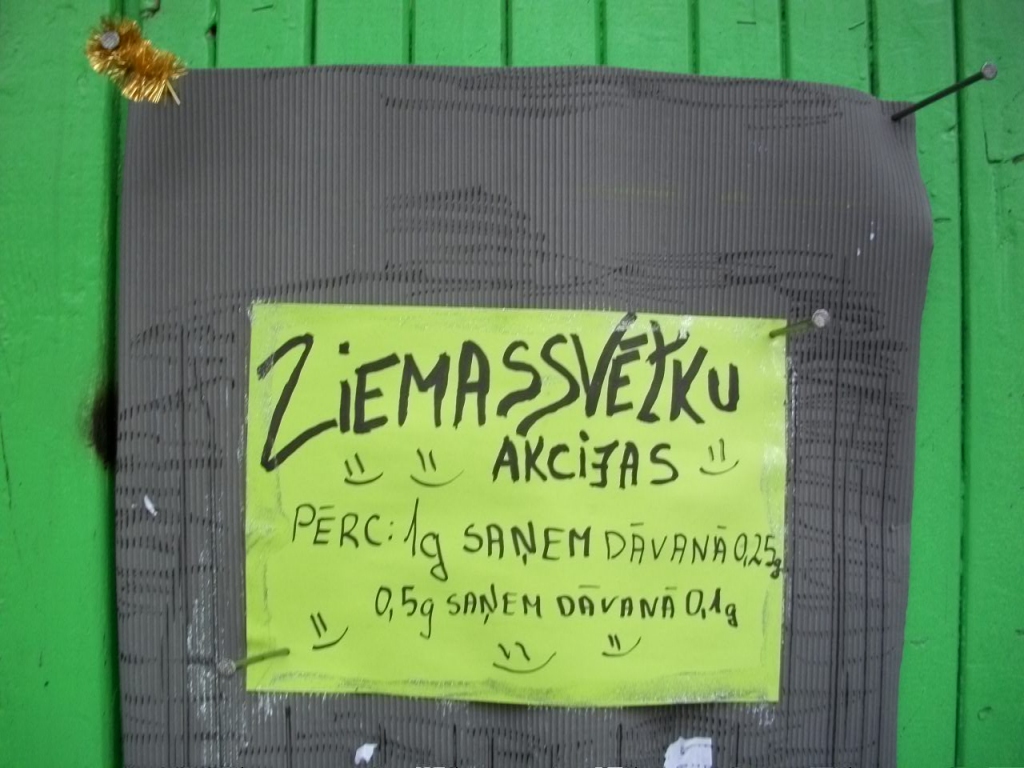 ZIEMASSVĒTKU
AKCIJAS
PĒRC: 1g SAŅEM DĀVANĀ 0,25g
0,5g SAŅEM DĀVANĀ 0,1g